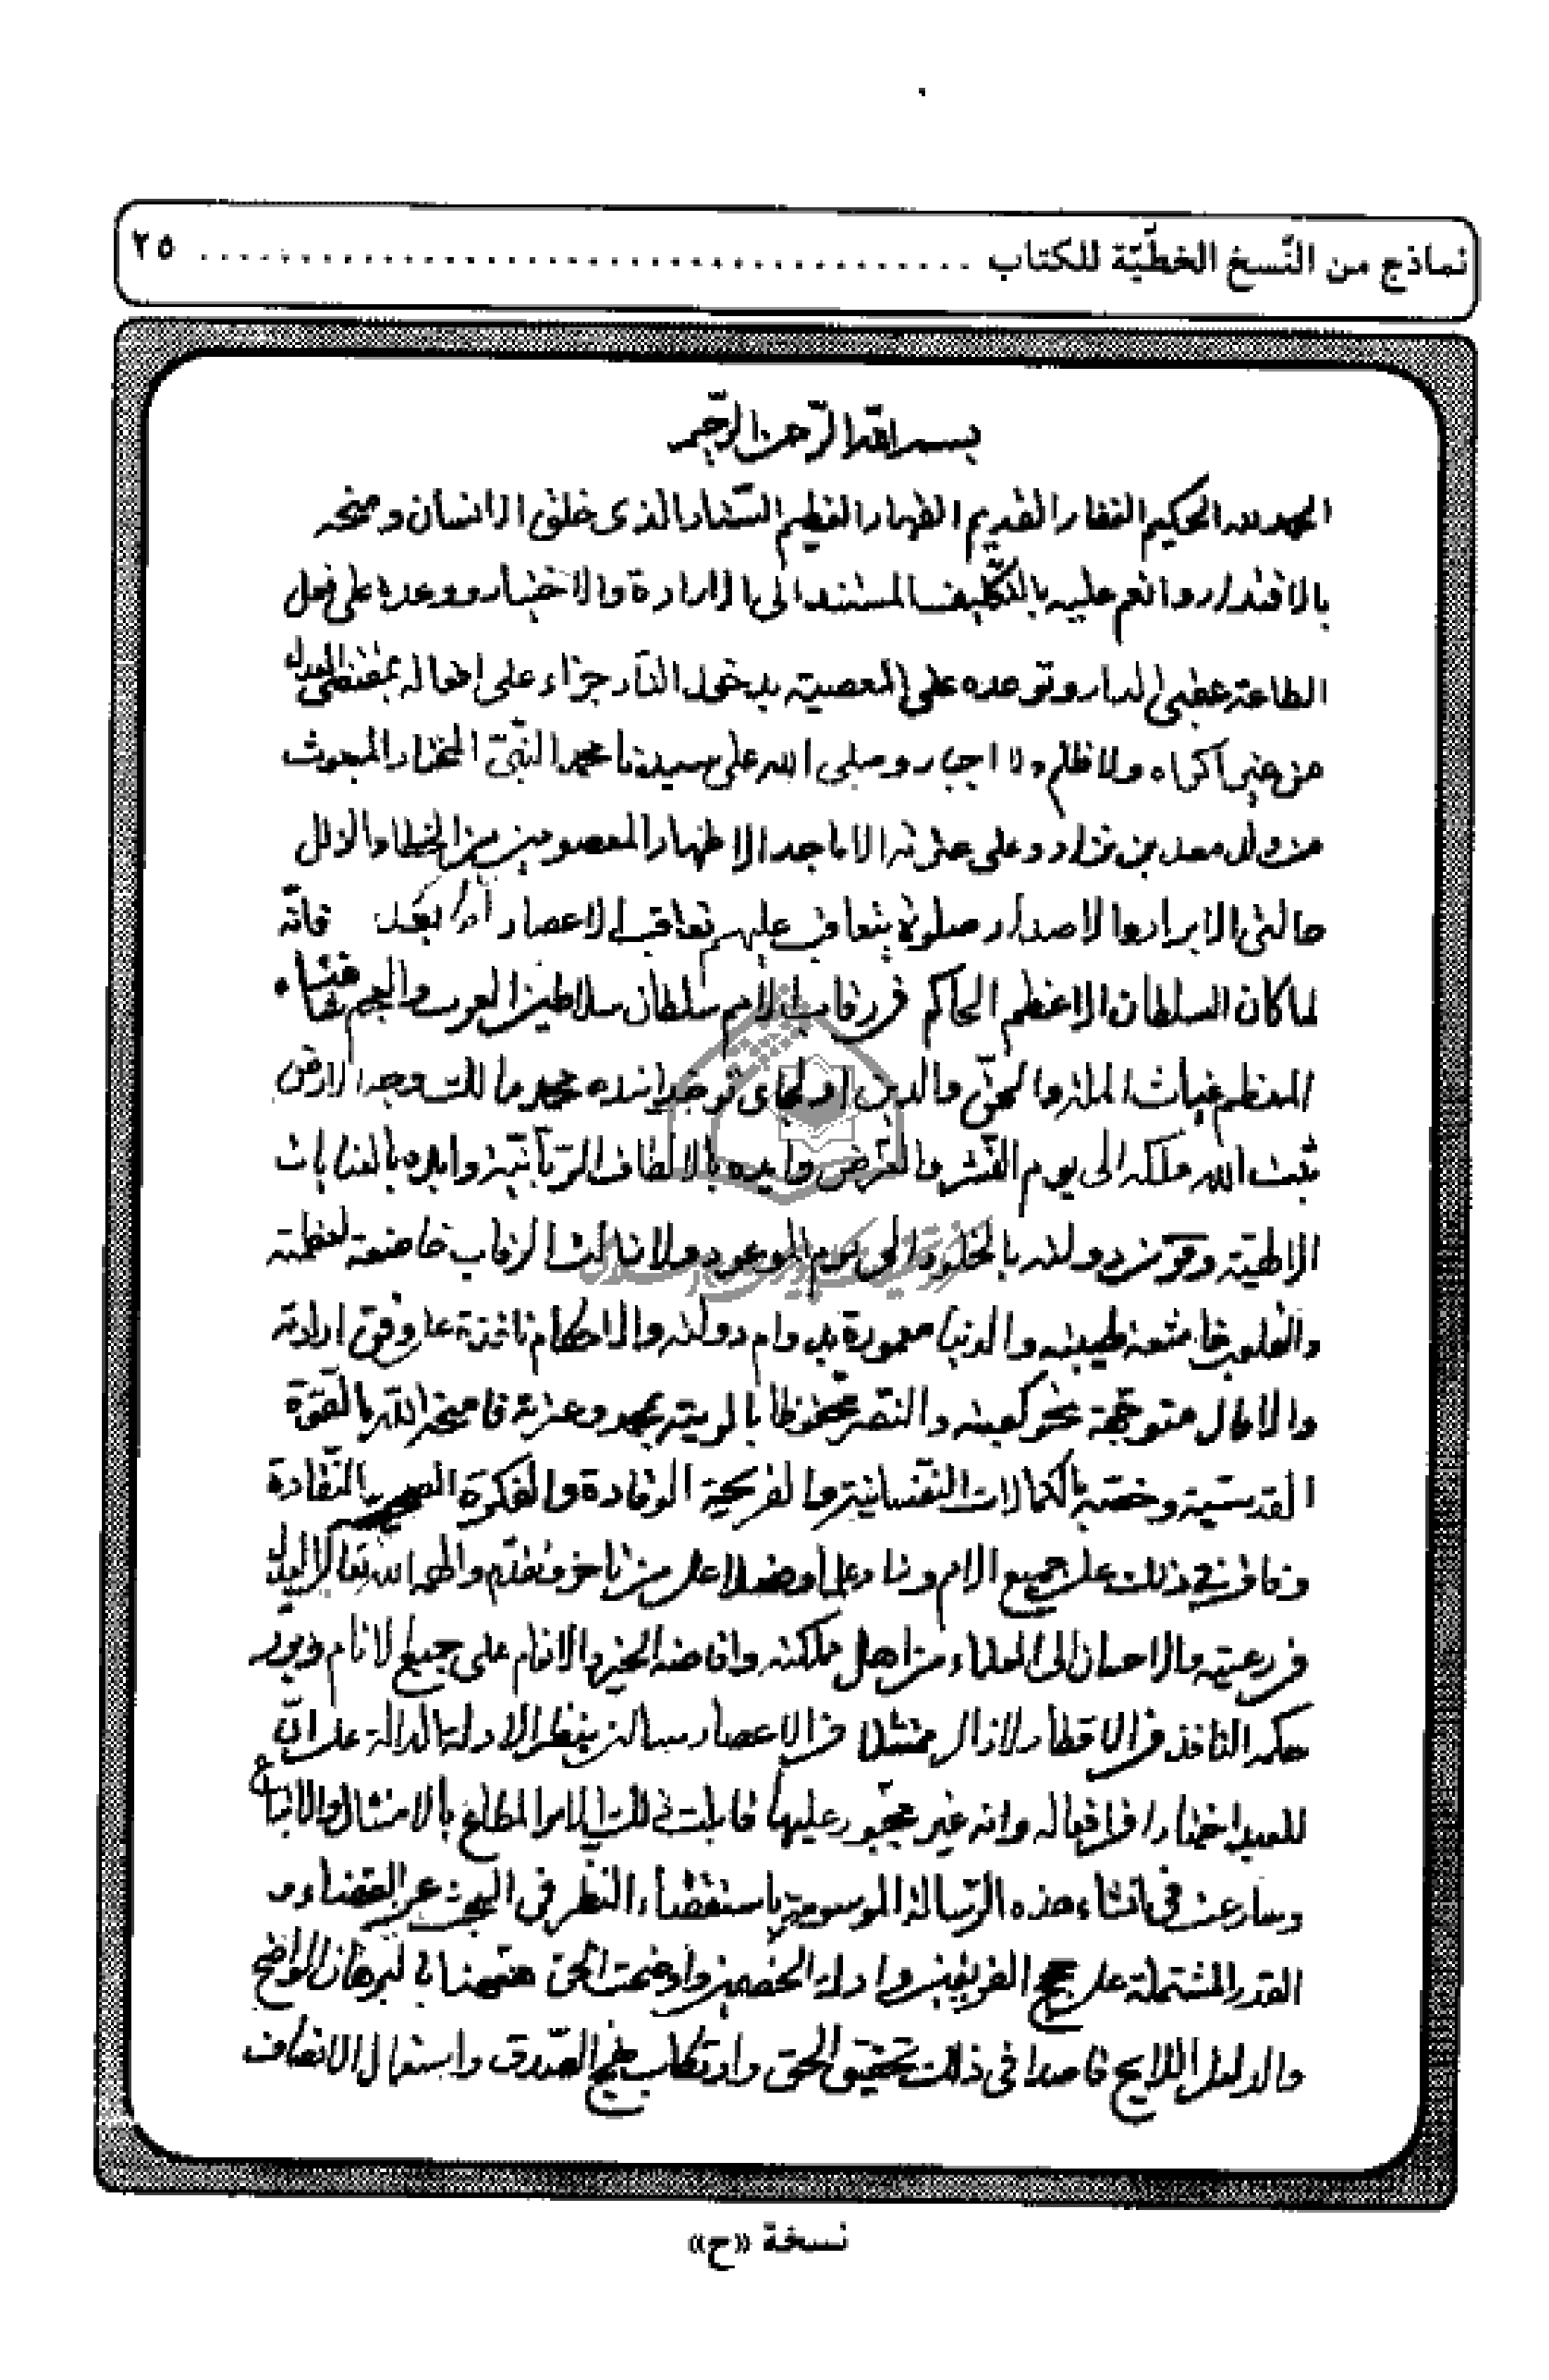 نماذج من النّسخ الخطّيّة للكتاب ........................................ ٢٥
بسم الله الرّحمن الرّحيم
الحمد لله الحكيم الغفار القديم القهار العظيم الستّار الذى خلق الانسان ومنحه
بالاقتدار وانعم عليه بالتكليف المستند الى الارادة والاختيار ووعده على فعل
الطاعة عقبى الدار وتوعده على المعصية بدخول النّار جزاء على افعاله بمقتضى العدل
من غير اكراه ولا ظلم ولا اجبار وصلى الله على سيدنا محمد النبىّ المختار المبعوث
من ولد معد بن نزار وعلى عترته الاماجد الاطهار المعصومين من الخطاء والزلل
حالتى الايراد والاصدار صلوة يتعاقب عليهم تعاقب الاعصار أمّا بعد فانّه
لما كان السلطان الاعظم الحاكم فى رقاب الامم سلطان سلاطين العرب والعجم شاهنشاه
المعظم غياث الملة والحق والدين اولجايتو خدابنده محمد مالك وجه الارض
ثبت الله ملكه الى يوم النشر والعرض وايده بالالطاف الربّانيّة وامده بالعنايات
الالهيّة وقرن دولته بالخلود الى يوم الموعود ولا زالت الرقاب خاضعة لعظمته
والقلوب خاشعة لهيبته والدنيا معمورة بدوام دولته والاحكام نافذة على وفق ارادته
والامال متوجّهة نحو كعبته والنصر محفوظا بالويته بمحمد وعترته قد منحه الله بالقوّة
القدسيّة وخصّه بالكمالات النّفسانية والقريحة الوقادة والفكرة الصحيحة النقّادة
وفاق فى ذلك على جميع الامم وزاد علما وفضلا على من تأخر وتقدّم والهمه الله تعالى العدل
فى رعيته والاحسان الى العلماء من اهل مملكته وافاضة الخير والانعام على جميع الانام وبرز
حكمه النافذ فى الاقطار لا زال ممتثلا فى الاعصار برسالة ينظر الادلة الدالة على انّ
للعبد اختيارا فى افعاله وانه غير مجبور عليها قابلت ذلك الامر المطاع بالامتثال والاتباع
وسارعت فى انشاء هذه الرّسالة الموسومة باستقصاء النظر فى البحث عن القضاء و
القدر المشتملة على حجج الفريقين وادلة الخصمين واوضحت الحق منهما بالبرهان الواضح
والدليل اللايح قاصدا فى ذلك تحقيق الحق وارتكاب نهج الصّدق واستعمال الانصاف
نسخة «ح»